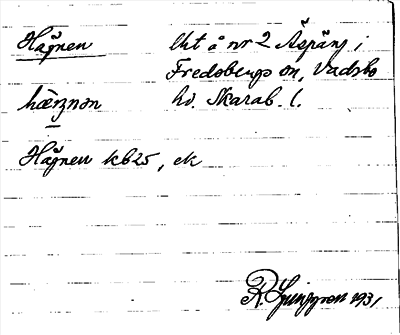 Hägnen
Ut å nr 2 Äspäng i
Fredsbergs sn, Vadsbo
hd. Skarab. l.
hæŋnən
Hägnen kb25, ek
R. Ljunggren 1931